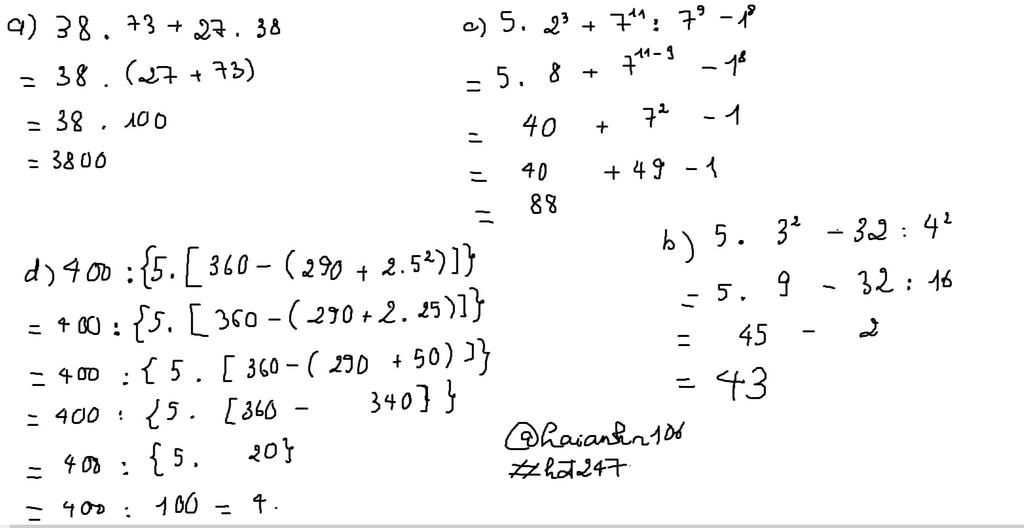 a) 38 . 73 + 27 . 38
= 38 . (27 + 73)
= 38 . 100
= 3800
c) 5. 2³ + 7¹¹ : 7⁹ - 1⁸
= 5. 8 + 7¹¹⁻⁹ - 1⁸
= 40 + 7² - 1
= 40 + 49 - 1
= 88
d) 400 : {5. [360 - (290 + 2.5²)]}
= 400 : {5. [360 - (290 + 2. 25)]}
= 400 : {5 . [360 - (290 + 50)]}
= 400 : {5. [360 - 340]}
= 400 : {5. 20}
= 400 : 100 = 4.
b) 5. 3² - 32 : 4²
= 5. 9 - 32 : 16
= 45 - 2
= 43